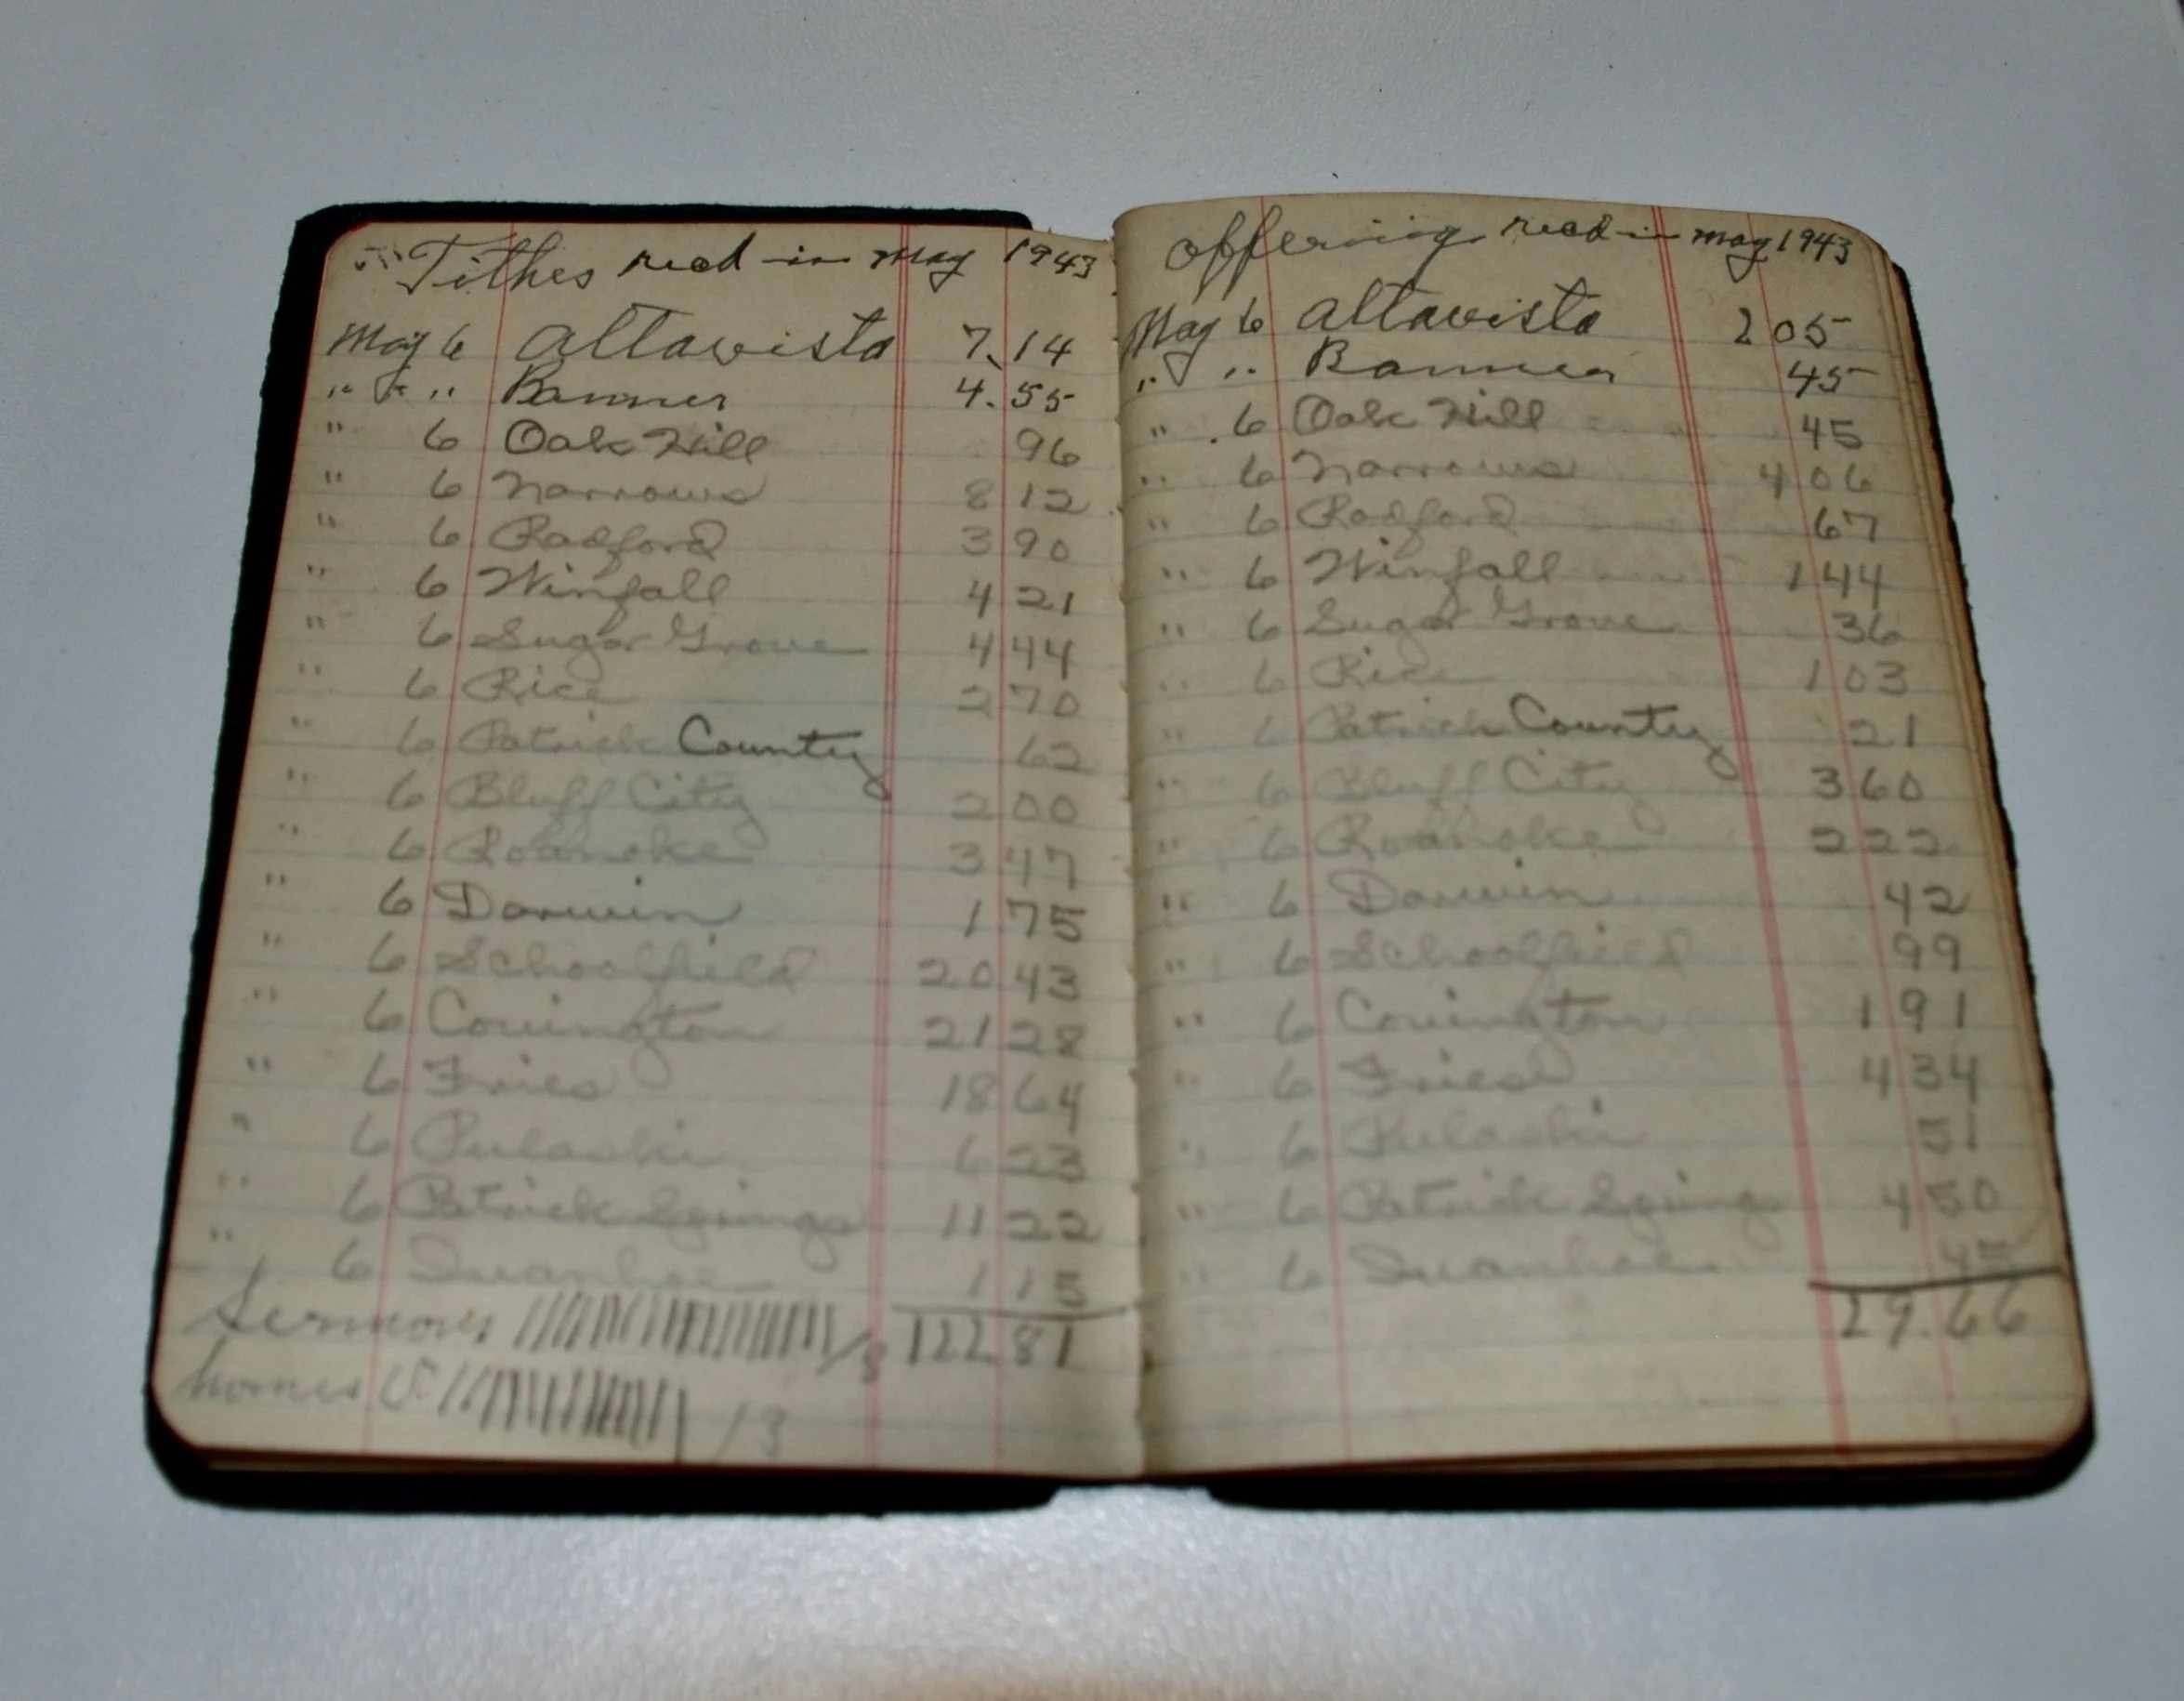 Tithes recd in May 1943
May 6 Altavista 7.14
" " " Banner 4.55
" 6 Oak Hill 96
" 6 Narrows 8 12
" 6 Radford 3 90
" 6 Winfall 4 21
" 6 Sugar Grove 4 44
" 6 Rice 2 70
" 6 Patrick County 62
" 6 Bluff City 2 00
" 6 Roanoke 3 47
" 6 Darwin 1 75
" 6 Schoolfield 20 43
" 6 Covington 21 28
" 6 Fries 18 64
" 6 Pulaski 6 23
" 6 Patrick Springs 11 22
" 6 Ivanhoe 1 15
Sermons 18 122 81
homes 13
Offering recd in May 1943
May 6 Altavista 2 05
" " Banner 45
" 6 Oak Hill 45
" 6 Narrows 4 06
" 6 Radford 67
" 6 Winfall 1 44
" 6 Sugar Grove 36
" 6 Rice 1 03
" 6 Patrick County 21
" 6 Bluff City 3 60
" 6 Roanoke 2 22
" 6 Darwin 42
" 6 Schoolfield 99
" 6 Covington 1 91
" 6 Fries 4 34
" 6 Pulaski 51
" 6 Patrick Springs 4 50
" 6 Ivanhoe 45
29.66